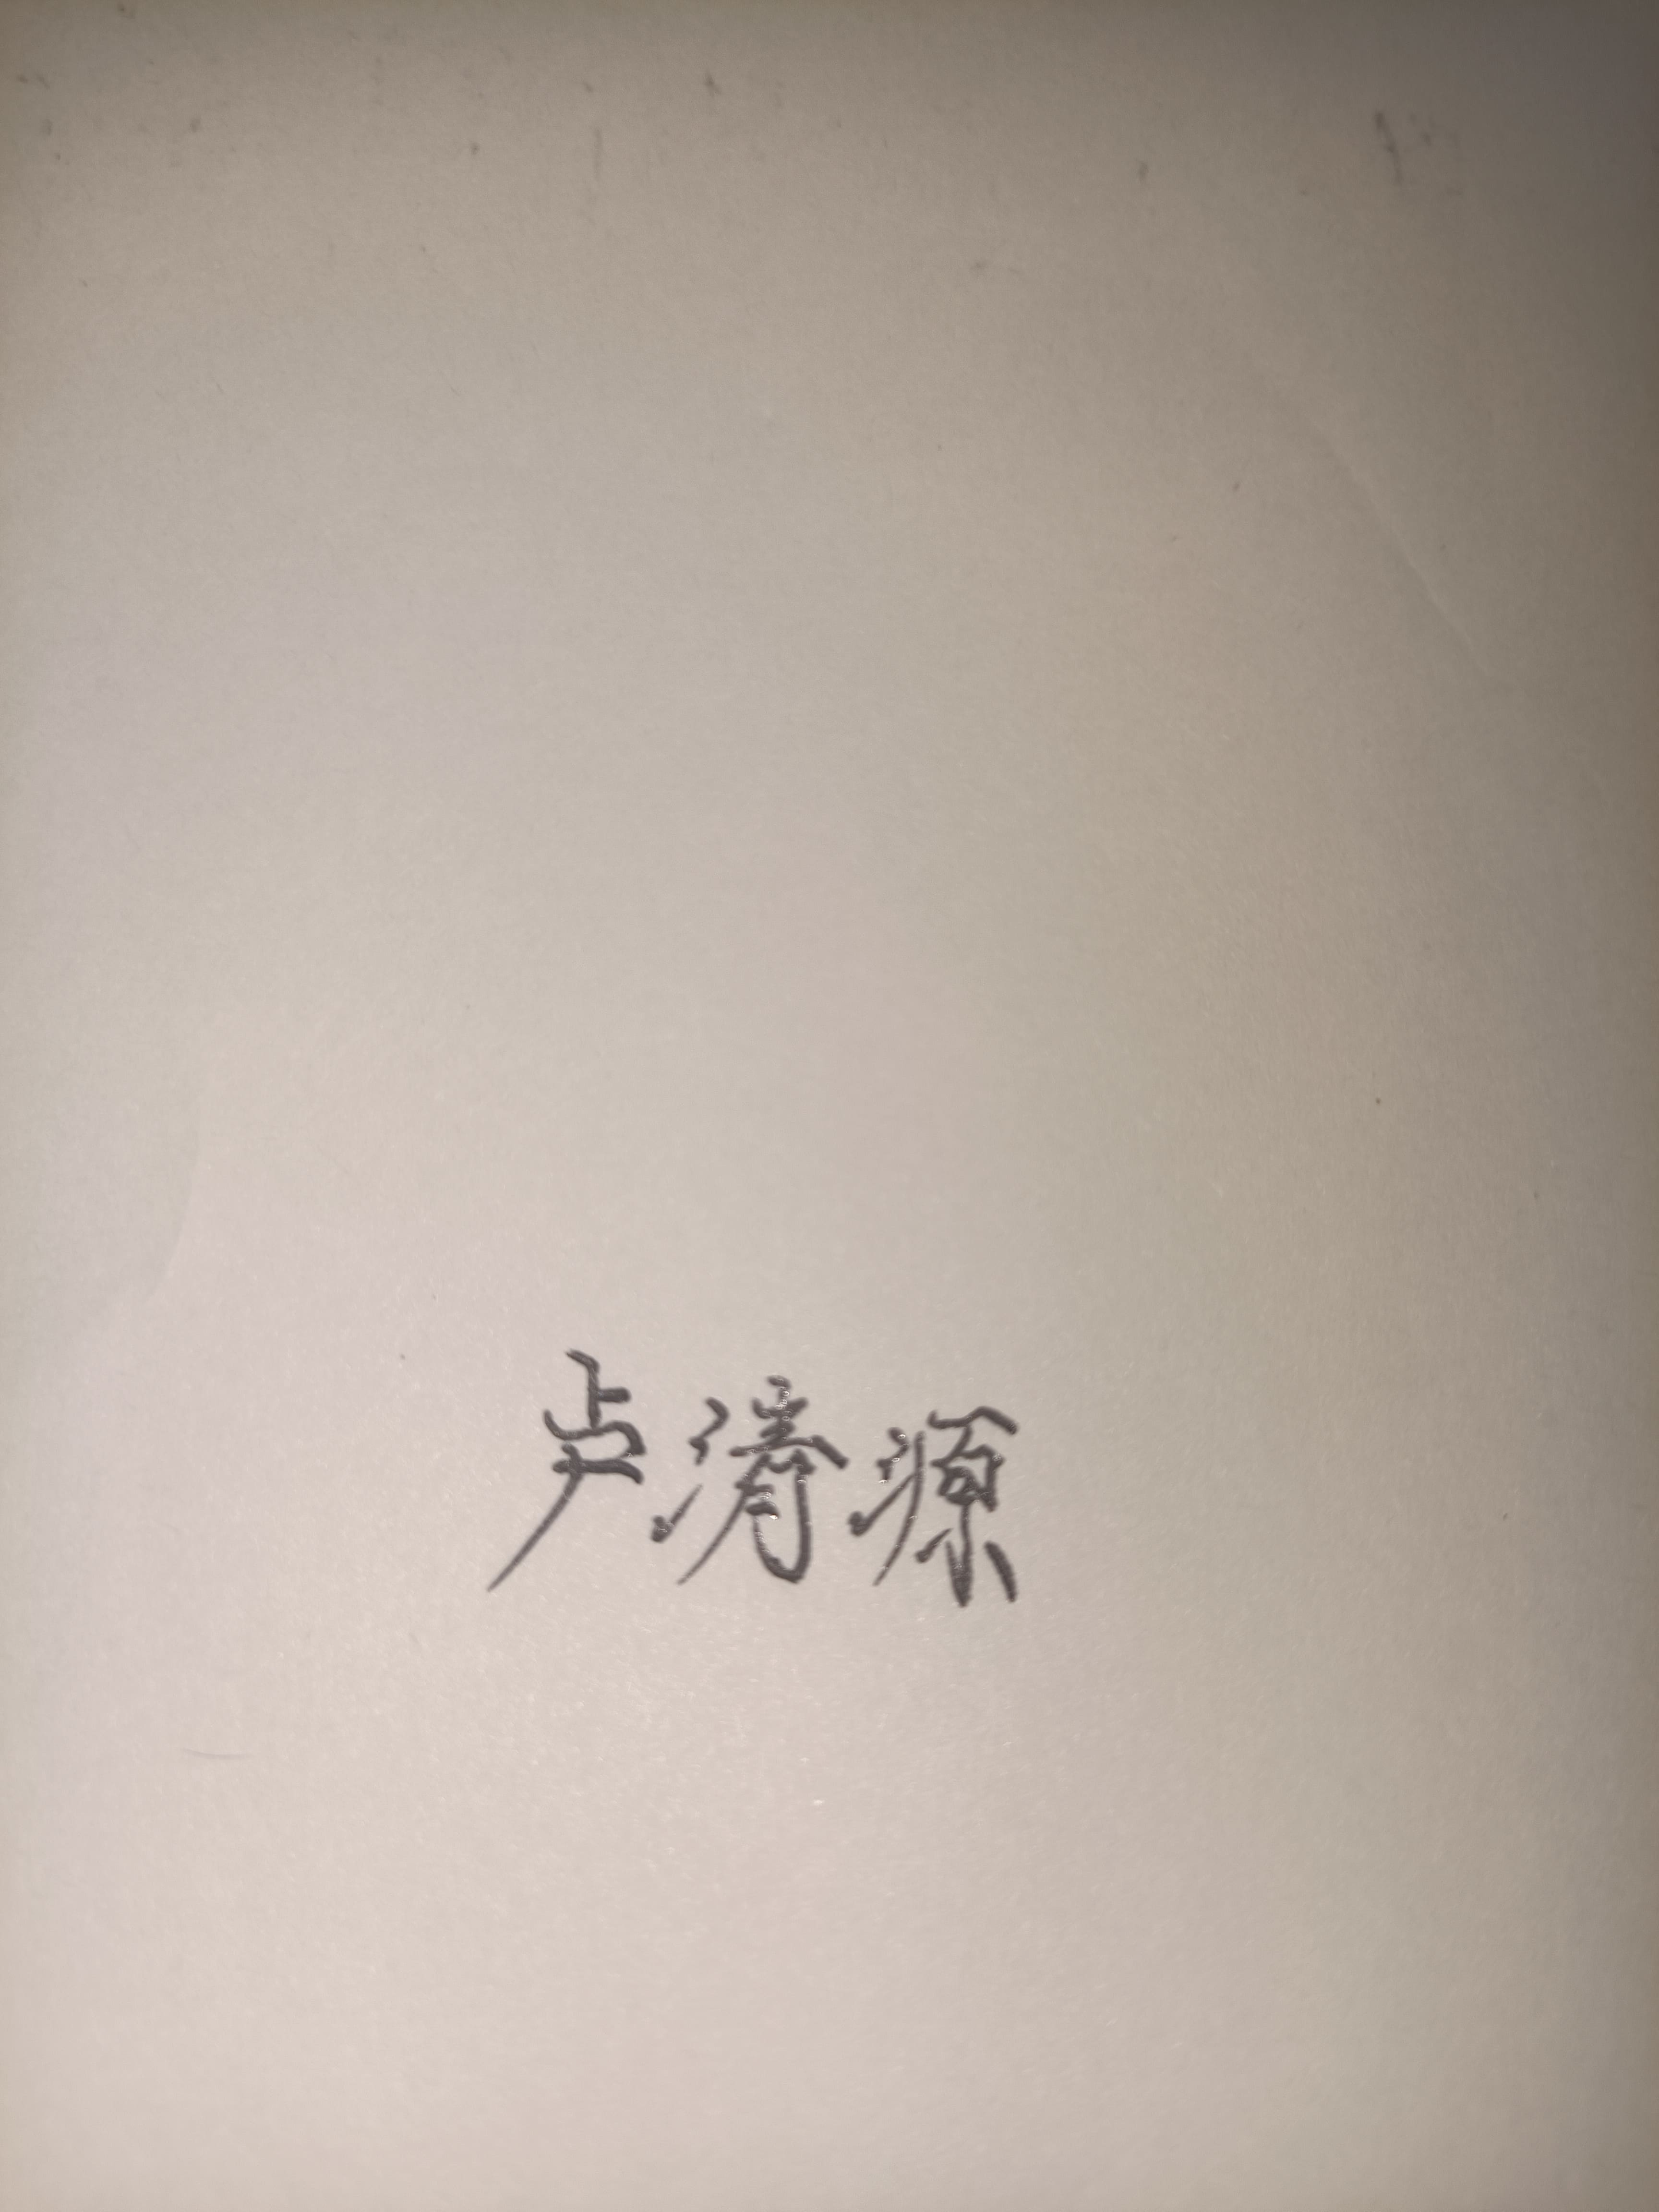 卢清源